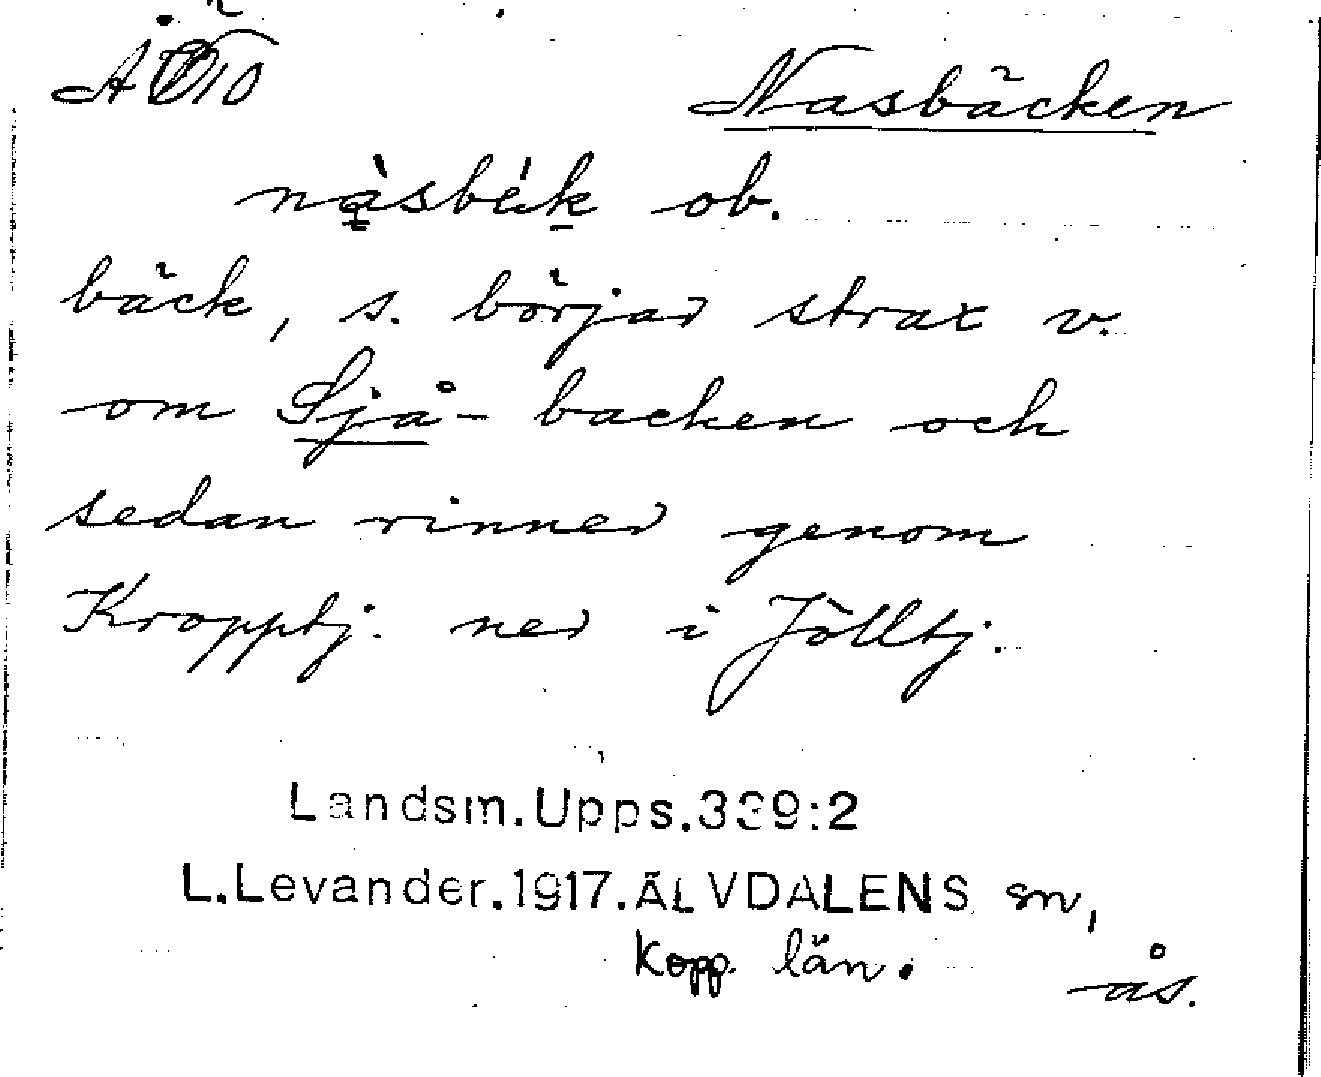 Nasbäcken
nàsbé̩k ob.
bäck, s. börjar strax v.
om Sjå- backen och
sedan rinner genom
Kropptj. ner i Jölltj.
Landsm.Upps.339:2
L.Levander.1917.ÄLVDALENS sn,
Kopp. län.
ås.